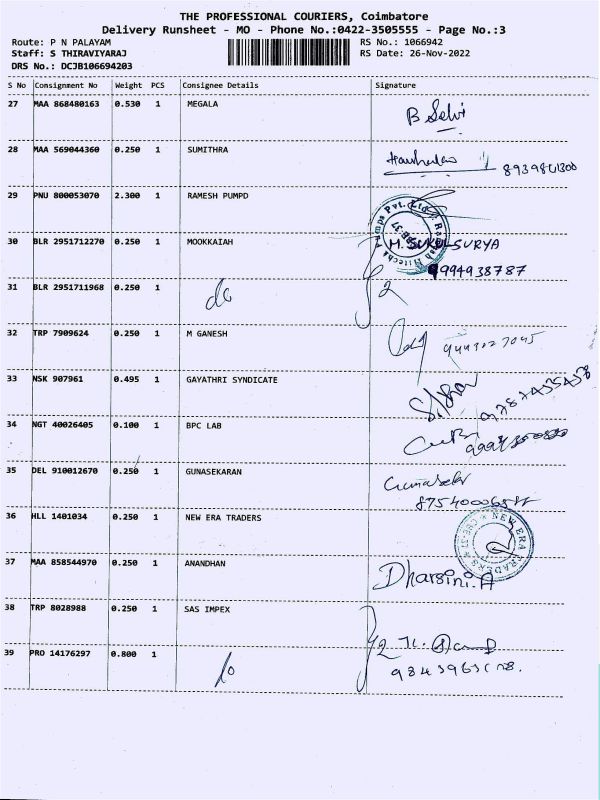 THE PROFESSIONAL COURIERS, Coimbatore
Delivery Runsheet - MO - Phone No.:0422-3505555 - Page No.:3
Route: P N PALAYAM RS No.: 1066942
Staff: S THIRAVIYARAJ RS Date: 26-Nov-2022
DRS No.: DCJB106694203
S No Consignment No Weight PCS Consignee Details Signature
27 MAA 868480163 0.530 1 MEGALA B Selvi
28 MAA 569044360 0.250 1 SUMITHRA
29 PNU 800053070 2.300 1 RAMESH PUMPD
30 BLR 2951712270 0.250 1 MOOKKAIAH SURYA
9994938787
31 BLR 2951711968 0.250 1 do 2
32 TRP 7909624 0.250 1 M GANESH
33 NSK 907961 0.495 1 GAYATHRI SYNDICATE
34 NGT 40026405 0.100 1 BPC LAB
35 DEL 910012670 0.250 1 GUNASEKARAN
36 HLL 1401034 0.250 1 NEW ERA TRADERS NEW ERA TRADERS
37 MAA 858544970 0.250 1 ANANDHAN Dharsini.A
38 TRP 8028988 0.250 1 SAS IMPEX 2
39 PRO 14176297 0.800 1 do